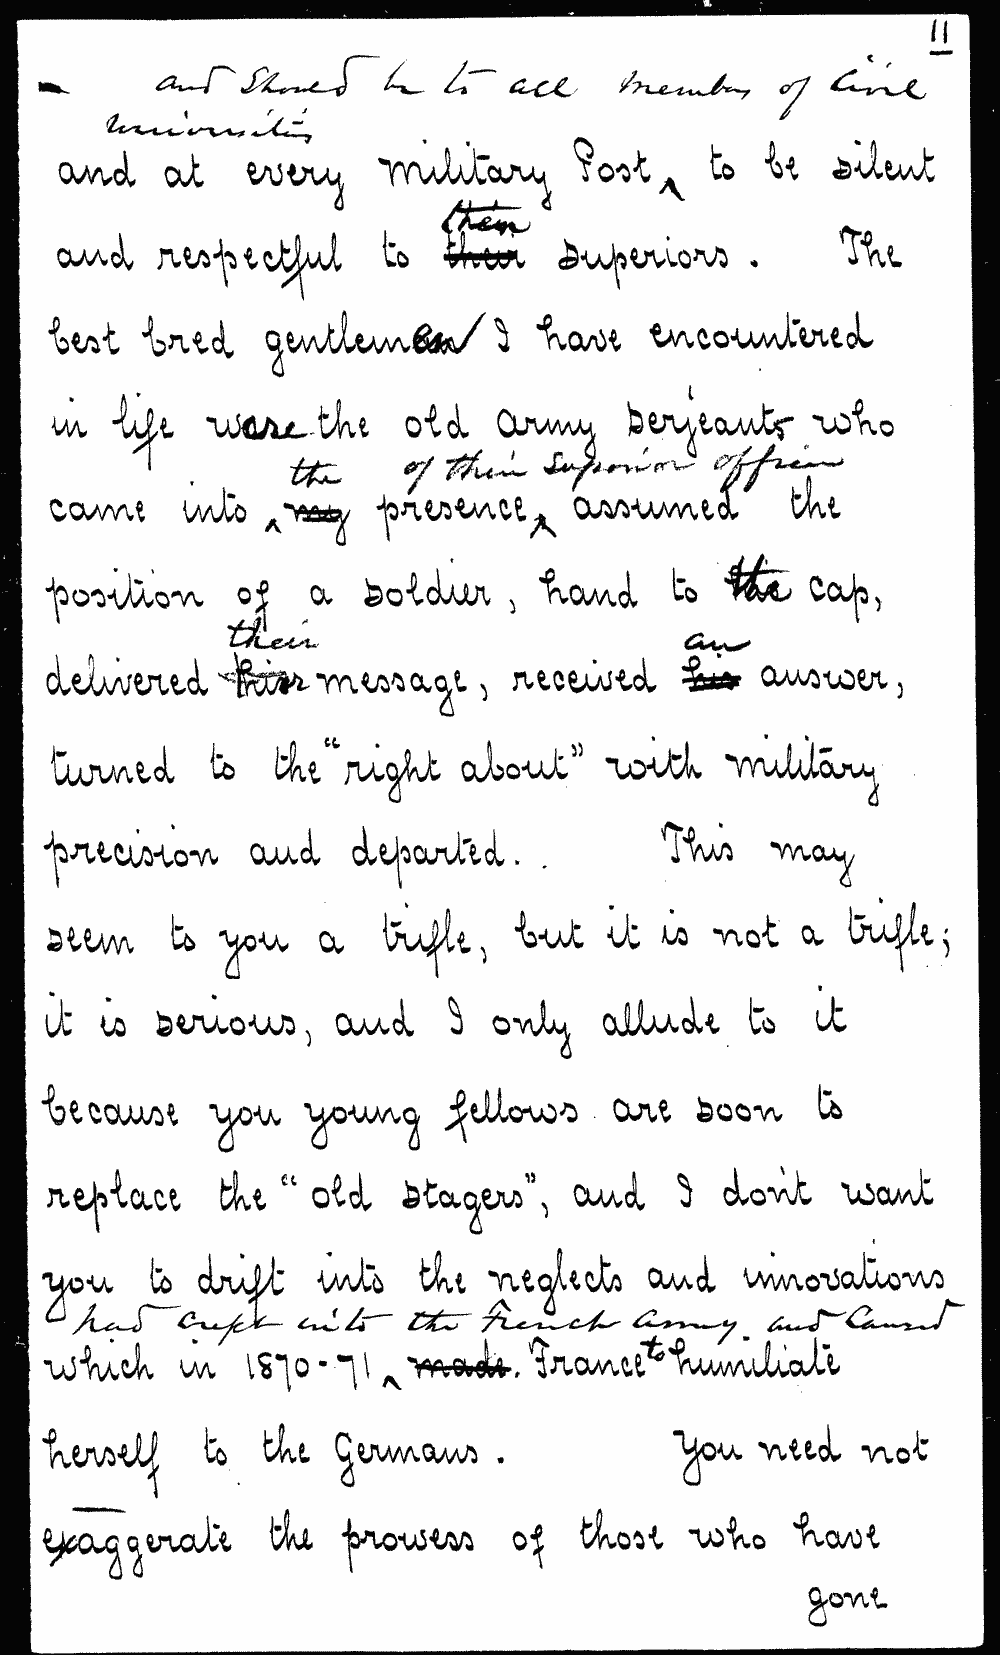 11
and should be to all members of Civil
Universities
and at every military Post ‸ to be silent
their
and respectful to their superiors. The
best bred gentlemen I have encountered
in life were the old army serjeants who
the of their superior officer
came into ‸ my presence, ‸ assumed the
position of a soldier, hand to the cap,
their an
delivered his message, received his answer,
turned to the "right about" with military
precision and departed. This may
seem to you a trifle, but it is not a trifle;
it is serious, and I only allude to it
because you young fellows are soon to
replace the "old stagers", and I don't want
you to drift into the neglects and innovations
had crept into the French Army. and caused
which in 1870-71 ‸ made. France to humiliate
herself to the Germans. You need not
exaggerate the prowess of those who have
gone